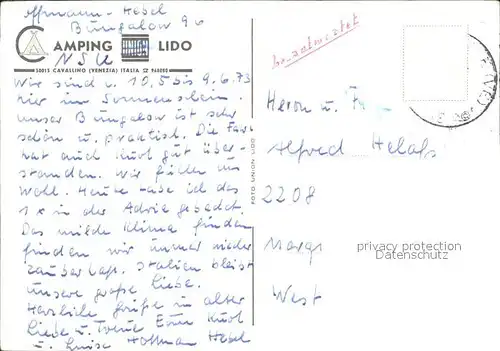 Hoffmann-Hebel
Bungalow 96
CAMPING UNION LIDO
NSU
30013 CAVALLINO (VENEZIA) ITALIA
Wir sind v. 10.5 bis 9.6.73
hier im Sonnenschein.
Unser Bungalow ist sehr
schön u. praktisch. Die Fahrt
hat auch Kurt gut über-
standen. Wir fühlen uns
wohl. Heute habe ich das
1x in der Adria gebadet.
Das milde Klima finden
finden wir immer wieder
zauberhaft. Italien bleibt
unsere große Liebe.
Herzliche Grüße in alter
Liebe u. Treue Euer Kurt
u. Luise Hoffman Hebel
FOTO UNION LIDO
beantwortet
Herrn u. Frau
Alfred
2208
West
privacy protection
Datenschutz